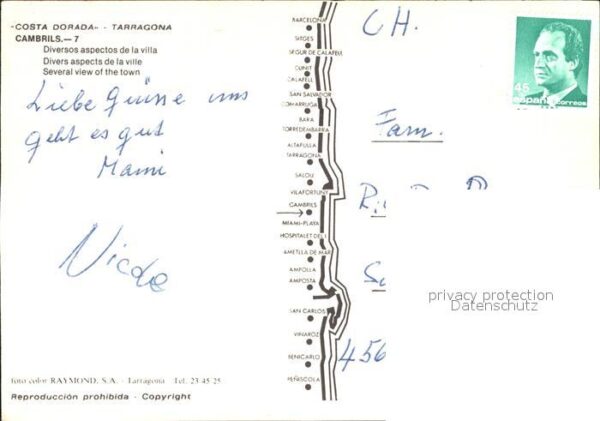 "COSTA DORADA" - TARRAGONA
CAMBRILS.—7
Diversos aspectos de la villa
Divers aspects de la ville
Several view of the town
Liebe Grüsse uns
geht es gut
Mami
Nicole
foto color RAYMOND, S.A. - Tarragona Tel. 23 45 25
Reproducción prohibida - Copyright
BARCELONA
SITGES
SEGUR DE CALAFELL
CUNIT
CALAFELL
SAN SALVADOR
COMARRUGA
BARA
TORREDEMBARRA
ALTAFULLA
TARRAGONA
SALOU
VILAFORTUNY
CAMBRILS
MIAMI-PLAYA
HOSPITALET DE L'I
AMETLLA DE MAR
AMPOLLA
AMPOSTA
SAN CARLOS
VINAROZ
BENICARLO
PEÑISCOLA
CH.
45
españa correos
Fam.
456
privacy protection
Datenschutz